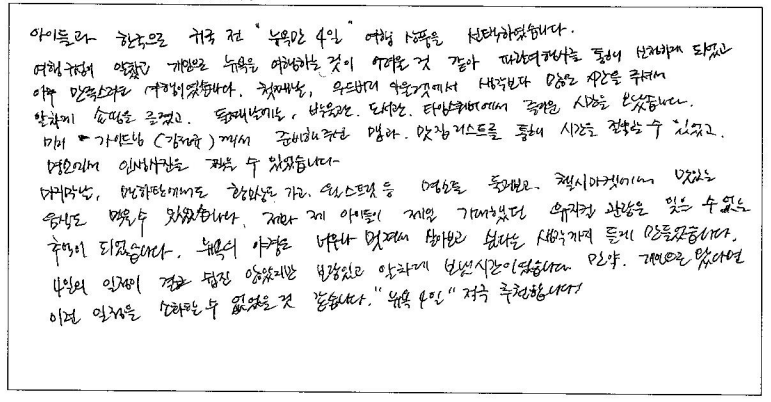 아이들과 한국으로 귀국 전 "뉴욕만 4일" 여행 상품을 선택하였습니다.
여행 구성이 알찼고 개인으로 뉴욕을 여행하는 것이 어려울 것 같아 따라여행사를 통해 신청하게 되었고
아주 만족스러운 여행이었습니다. 첫째날, 우드버리 아울렛에서 생각보다 많은 시간을 주셔서
알차게 쇼핑을 즐겼고. 둘째날에는, 박물관. 도서관. 타임스퀘어에서 즐거운 시간을 보냈습니다.
미리 가이드님 께서 준비해주신 맵과. 맛집 리스트를 통해 시간을 절약할 수 있었고.
명소에서 인생사진을 찍을 수 있었습니다~
마지막날, 맨하탄에서도 가고. 월스트릿 등 명소를 둘러보고. 첼시마켓에서 맛있는
음식도 먹을수 있었습니다. 저와 제 아이들이 제일 기대했던 뮤지컬 관람은 잊을 수 없는
추억이 되었습니다. 뉴욕의 야경은 너무나 멋져서 살아보고 싶다는 생각까지 들게 만들었습니다.
4일의 일정이 결코 쉽진 않았지만 보람있고 알차게 보낸시간이었습니다. 만약. 개인으로 왔다면
이런 일정을 소화할 수 없었을 것 같습니다. "뉴욕 4일" 적극 추천합니다!